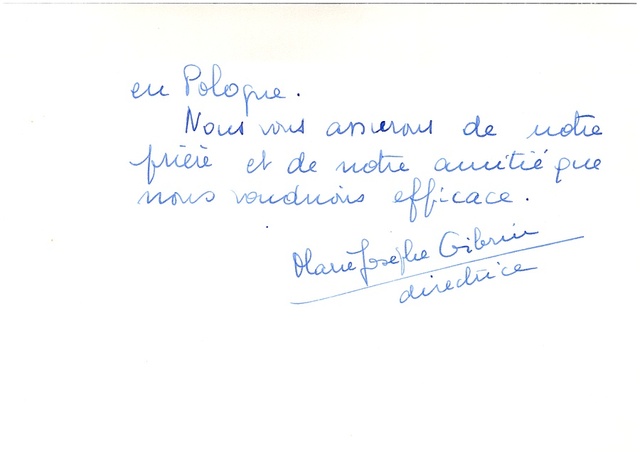 en Pologne.
Nous vous assurons de notre
prière et de notre amitié que
nous voudrions efficace.
Marie Josèphe
directrice